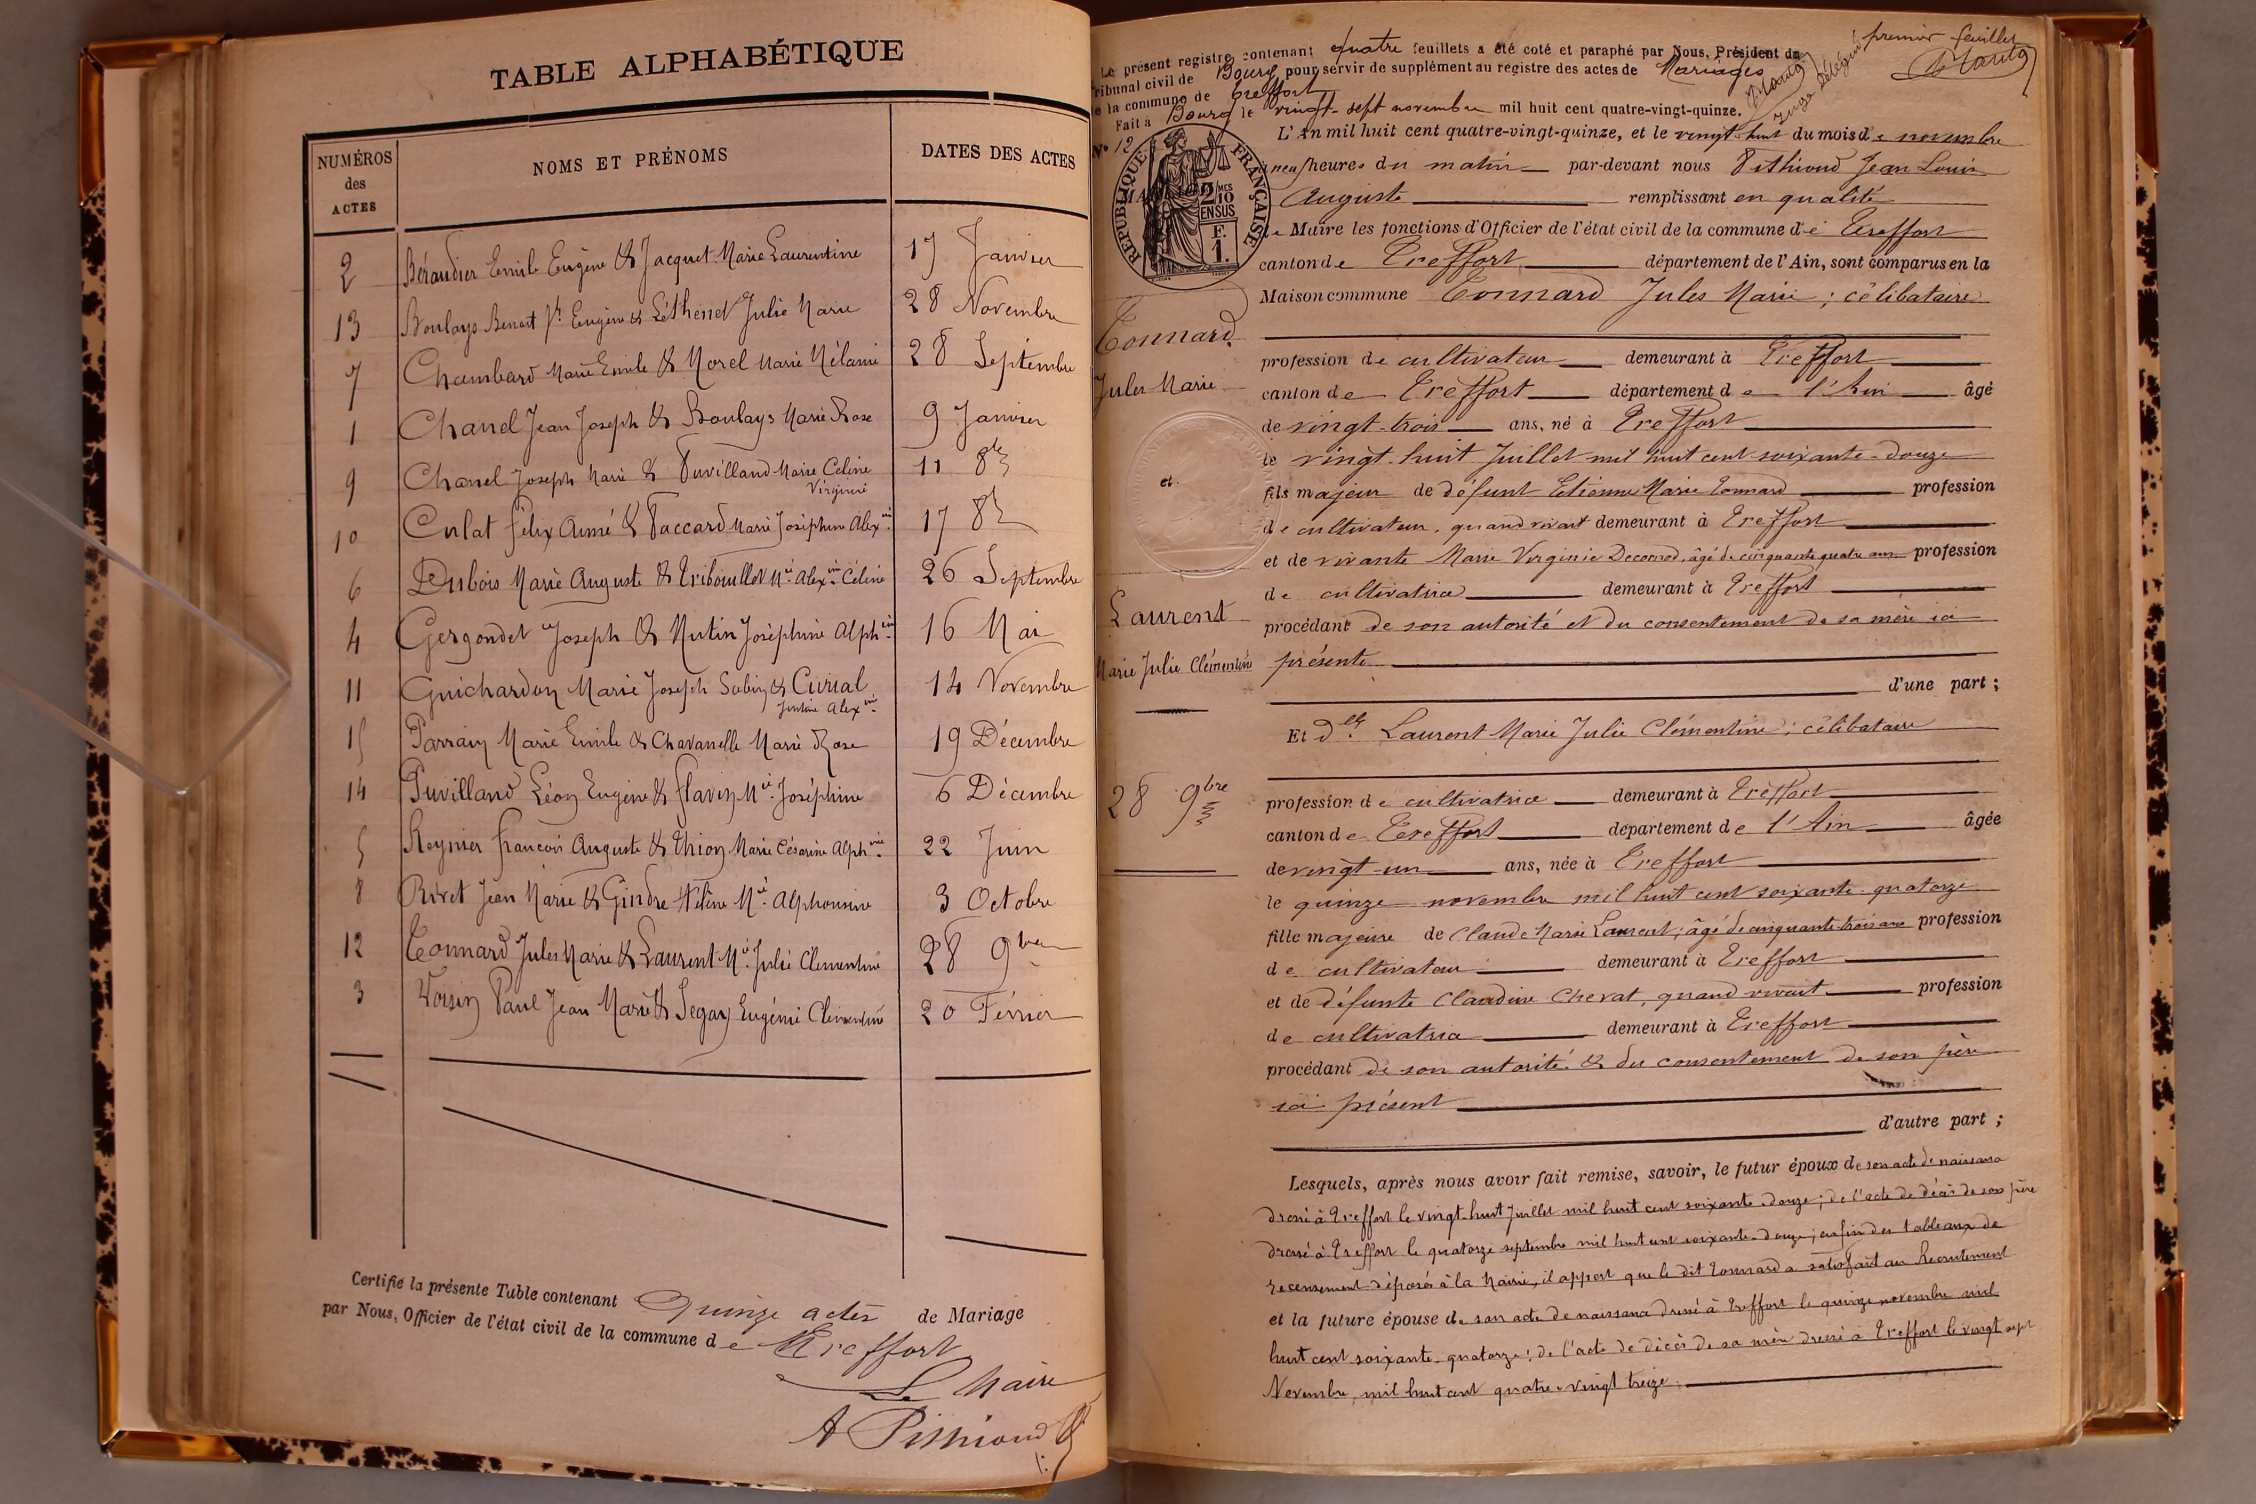 TABLE ALPHABÉTIQUE
NUMÉROS des ACTES NOMS ET PRÉNOMS DATES DES ACTES
2 Béraudier Emile Eugène & Jacquet Marie Laurentine 17 Janvier
13 Boulays Benoit Eugène & Léthenet Julie Marie 28 Novembre
7 Chambard Marie Emile & Morel Marie Mélanie 28 Septembre
1 Chanel Jean Joseph & Boulays Marie Rose 9 Janvier
9 Chanel Joseph Marie & Puvilland Marie Céline 11 8bre
Virginie
10 Culat Félix Aimé & Paccard Marie Joséphine Alexine 17 8bre
6 Dubois Marie Auguste & Tribouillet Mie Alexine Céline 26 Septembre
4 Gergondet Joseph & Mutin Joséphine Alphine 16 Mai
11 Guichardon Marie Joseph Sabin & Curial 14 Novembre
Justine Alexine
15 Parrain Marie Emile & Chavanelle Marie Rose 19 Décembre
14 Puvilland Léon Eugène & Flavin Mie Joséphine 6 Décembre
5 Reynier François Auguste & Thion Marie Césarine Alphsie 22 Juin
8 Rivet Jean Marie & Gindre Hélène Mie Alphonsine 3 Octobre
12 Tonnard Jules Marie & Laurent Mie Julie Clémentine 28 9bre
3 Voisin Paul Jean Marie & Segay Eugénie Clémentine 20 Février
Certifié la présente Table contenant Quinze actes de Mariage
par Nous, Officier de l'état civil de la commune de Treffort
Le Maire
A Pithioud
premier feuillet
Le présent registre contenant quatre feuillets a été coté et paraphé par Nous, Président du
Tribunal civil de Bourg pour servir de supplément au registre des actes de Mariages
de la commune de Treffort
Fait à Bourg le vingt-sept novembre mil huit cent quatre-vingt-quinze.
juge délégué
N° 12
RÉPUBLIQUE FRANÇAISE
2/10 MES EN SUS
F. 1.
L'An mil huit cent quatre-vingt-quinze, et le vingt-huit du mois de novembre
à neuf heures du matin par-devant nous Pithioud Jean Louis
Auguste remplissant en qualité
de Maire les fonctions d'Officier de l'état civil de la commune de Treffort
canton de Treffort département de l'Ain, sont comparus en la
Maison commune Tonnard Jules Marie ; célibataire
Tonnard
Jules Marie
et
Laurent
Marie Julie Clémentine
28 9bre
profession de cultivateur demeurant à Treffort
canton de Treffort département de l'Ain âgé
de vingt-trois ans, né à Treffort
le vingt-huit Juillet mil huit cent soixante-douze
fils majeur de défunt Etienne Marie Tonnard profession
de cultivateur, quand vivait demeurant à Treffort
et de vivante Marie Virginie Decomod, âgé de cinquante quatre ans profession
de cultivatrice demeurant à Treffort
procédant de son autorité et du consentement de sa mère ici
présente
d'une part ;
Et Dlle Laurent Marie Julie Clémentine ; célibataire
profession de cultivatrice demeurant à Treffort
canton de Treffort département de l'Ain âgée
de vingt-un ans, née à Treffort
le quinze novembre mil huit cent soixante-quatorze
fille majeure de Claude Marie Laurent, âgé de cinquante-trois ans profession
de cultivateur demeurant à Treffort
et de défunte Claudine Chevat, quand vivait profession
de cultivatrice demeurant à Treffort
procédant de son autorité & du consentement de son père
ici présent
d'autre part ;
Lesquels, après nous avoir fait remise, savoir, le futur époux de son acte de naissance
dressé à Treffort le vingt-huit Juillet mil huit cent soixante-douze ; de l'acte de décès de son père
dressé à Treffort le quatorze septembre mil huit cent soixante-douze ; enfin des tableaux de
recensement déposés à la Mairie, il appert que le dit Tonnard a satisfait au Recrutement
et la future épouse de son acte de naissance dressé à Treffort le quinze novembre mil
huit cent soixante-quatorze ; de l'acte de décès de sa mère dressé à Treffort le vingt sept
Novembre, mil huit cent quatre-vingt treize.